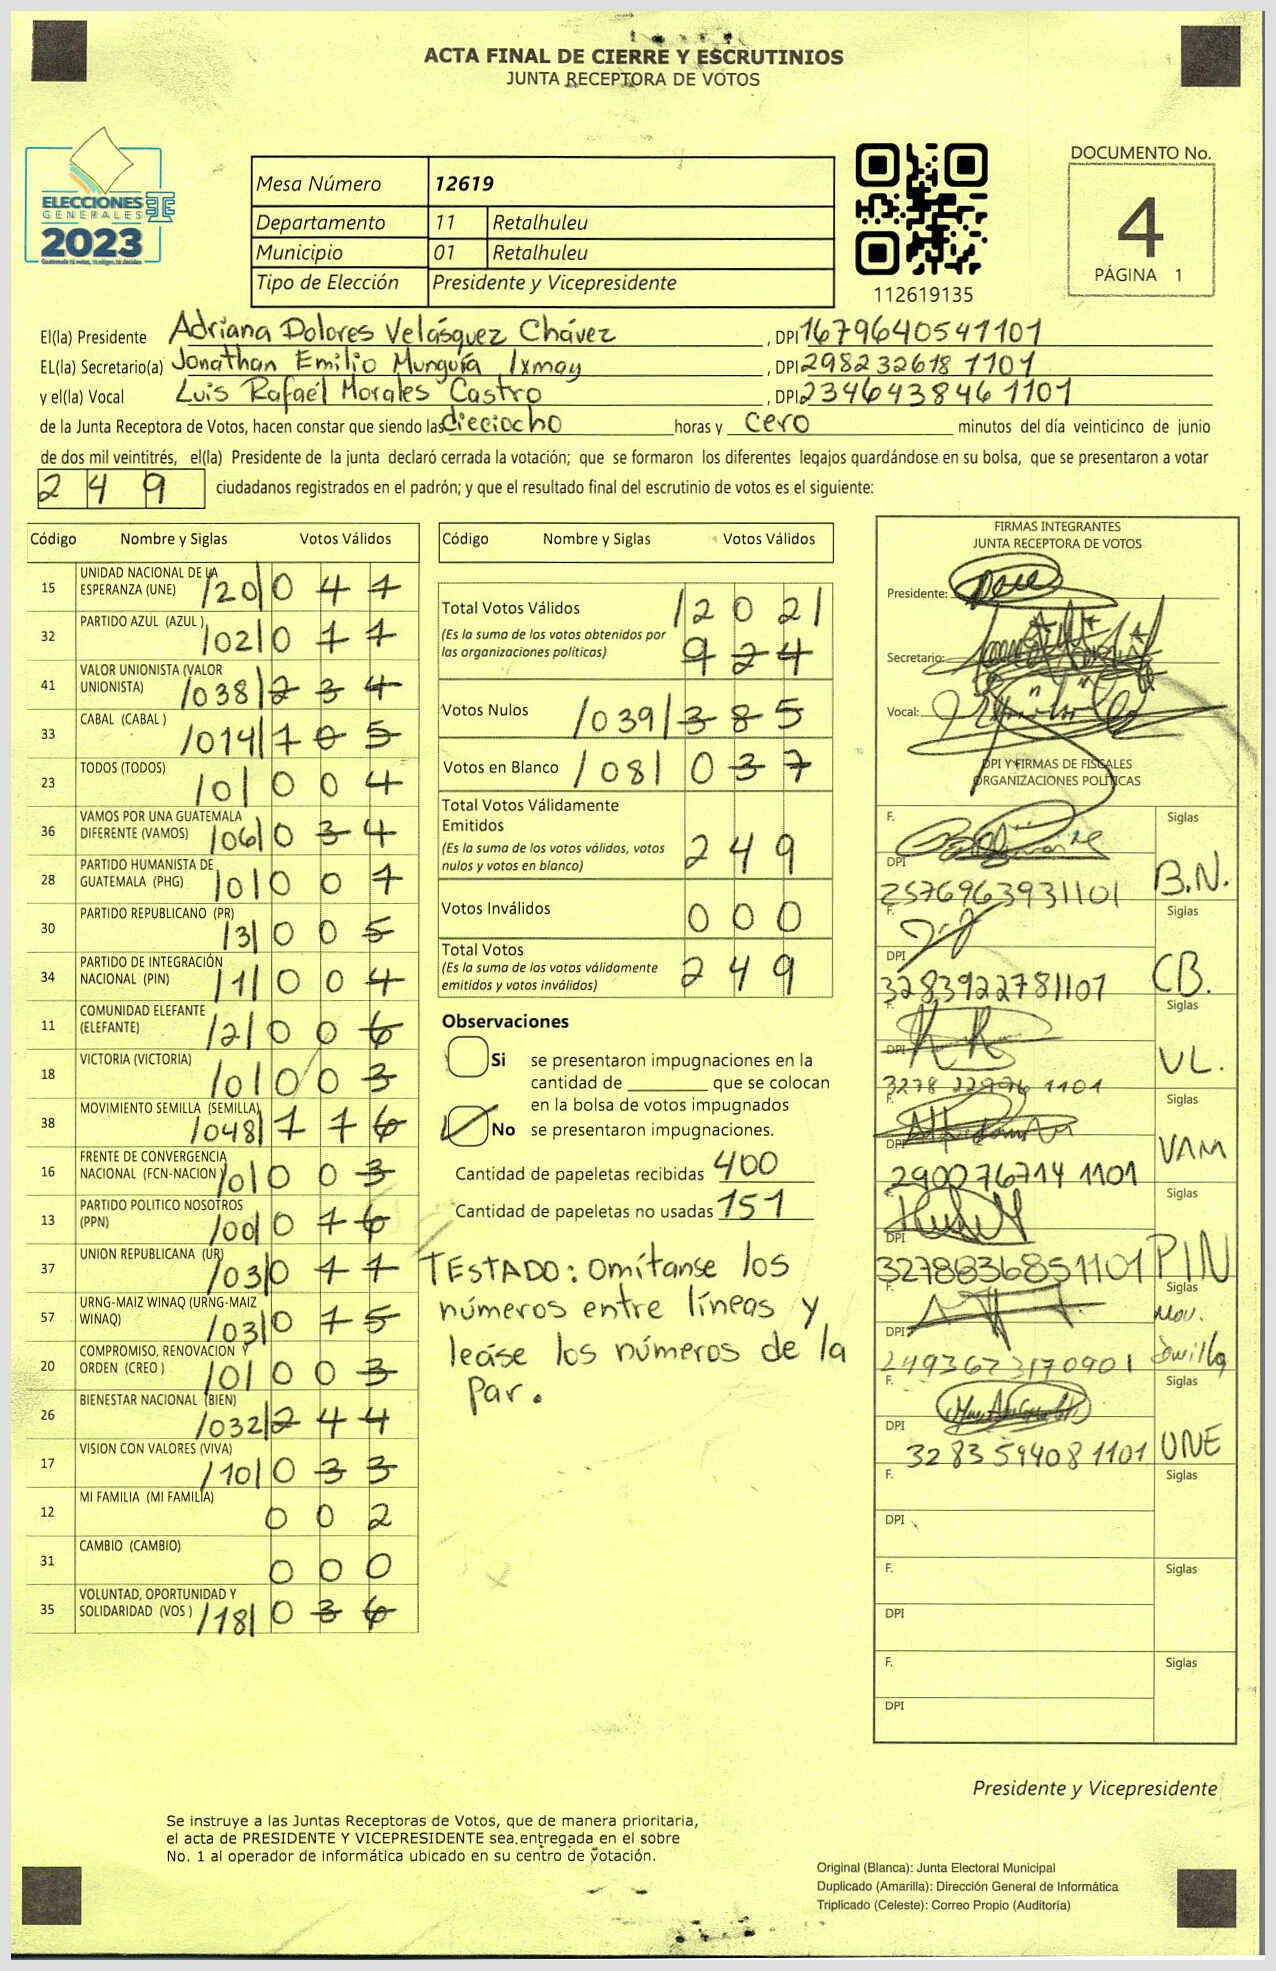 ACTA FINAL DE CIERRE Y ESCRUTINIOS
JUNTA RECEPTORA DE VOTOS
ELECCIONES
GENERALES
2023
Mesa Número 12619
Departamento 11 Retalhuleu
Municipio 01 Retalhuleu
Tipo de Elección Presidente y Vicepresidente
112619135
DOCUMENTO No.
4
PÁGINA 1
El(la) Presidente Adriana Dolores Velásquez Chávez, DPI 1679640541101
EL(la) Secretario(a) Jonathan Emilio Munguía Ixmay, DPI 298232618 1101
y el(la) Vocal Luis Rafael Morales Castro, DPI 234643846 1101
de la Junta Receptora de Votos, hacen constar que siendo las dieciocho horas y cero minutos del día veinticinco de junio
de dos mil veintitrés, el(la) Presidente de la junta declaró cerrada la votación; que se formaron los diferentes legajos guardándose en su bolsa, que se presentaron a votar
249 ciudadanos registrados en el padrón; y que el resultado final del escrutinio de votos es el siguiente:
Código Nombre y Siglas Votos Válidos
15 UNIDAD NACIONAL DE LA ESPERANZA (UNE) /20/ 0 4 1
32 PARTIDO AZUL (AZUL) /02/ 0 1 1
41 VALOR UNIONISTA (VALOR UNIONISTA) /038/ 2 3 4
33 CABAL (CABAL) /014/ 1 0 5
23 TODOS (TODOS) /0/ 0 0 4
36 VAMOS POR UNA GUATEMALA DIFERENTE (VAMOS) /06/ 0 3 4
28 PARTIDO HUMANISTA DE GUATEMALA (PHG) /0/ 0 0 1
30 PARTIDO REPUBLICANO (PR) /3/ 0 0 5
34 PARTIDO DE INTEGRACIÓN NACIONAL (PIN) /1/ 0 0 4
11 COMUNIDAD ELEFANTE (ELEFANTE) /2/ 0 0 6
18 VICTORIA (VICTORIA) /0/ 0 0 3
38 MOVIMIENTO SEMILLA (SEMILLA) /048/ 1 1 6
16 FRENTE DE CONVERGENCIA NACIONAL (FCN-NACION) /0/ 0 0 3
13 PARTIDO POLITICO NOSOTROS (PPN) /00/ 0 1 6
37 UNION REPUBLICANA (UR) /03/ 0 1 1
57 URNG-MAIZ WINAQ (URNG-MAIZ WINAQ) /03/ 0 1 5
20 COMPROMISO, RENOVACION Y ORDEN (CREO) /0/ 0 0 3
26 BIENESTAR NACIONAL (BIEN) /032/ 2 4 4
17 VISION CON VALORES (VIVA) /10/ 0 3 3
12 MI FAMILIA (MI FAMILIA) 0 0 2
31 CAMBIO (CAMBIO) 0 0 0
35 VOLUNTAD, OPORTUNIDAD Y SOLIDARIDAD (VOS) /18/ 0 3 6
Código Nombre y Siglas Votos Válidos
Total Votos Válidos /202/
(Es la suma de los votos obtenidos por
las organizaciones políticas) 9 2 4
Votos Nulos /039/ 3 8 5
Votos en Blanco /08/ 0 3 7
Total Votos Válidamente
Emitidos
(Es la suma de los votos válidos, votos
nulos y votos en blanco) 2 4 9
Votos Inválidos 0 0 0
Total Votos
(Es la suma de los votos válidamente
emitidos y votos inválidos) 2 4 9
Observaciones
Si se presentaron impugnaciones en la
cantidad de ________ que se colocan
en la bolsa de votos impugnados
No se presentaron impugnaciones.
Cantidad de papeletas recibidas 400
Cantidad de papeletas no usadas 151
TESTADO: omítanse los
números entre líneas y
leáse los números de la
par.
FIRMAS INTEGRANTES
JUNTA RECEPTORA DE VOTOS
Presidente:
Secretario:
Vocal:
DPI Y FIRMAS DE FISCALES
ORGANIZACIONES POLÍTICAS
F. Siglas
DPI 2576963931101 B.N.
F. Siglas
DPI 3283922781101 CB.
F. Siglas
DPI 3278 22996 1101 VL.
F. Siglas
DPI 290076714 1101 VAM
F. Siglas
DPI 3278836851101 PIN
F. Siglas
DPI 2493673170901 Mov. Semilla
F. Siglas
DPI 3283594081101 UNE
F. Siglas
DPI
F. Siglas
DPI
F. Siglas
DPI
Presidente y Vicepresidente
Se instruye a las Juntas Receptoras de Votos, que de manera prioritaria,
el acta de PRESIDENTE Y VICEPRESIDENTE sea entregada en el sobre
No. 1 al operador de informática ubicado en su centro de votación.
Original (Blanca): Junta Electoral Municipal
Duplicado (Amarilla): Dirección General de Informática
Triplicado (Celeste): Correo Propio (Auditoría)